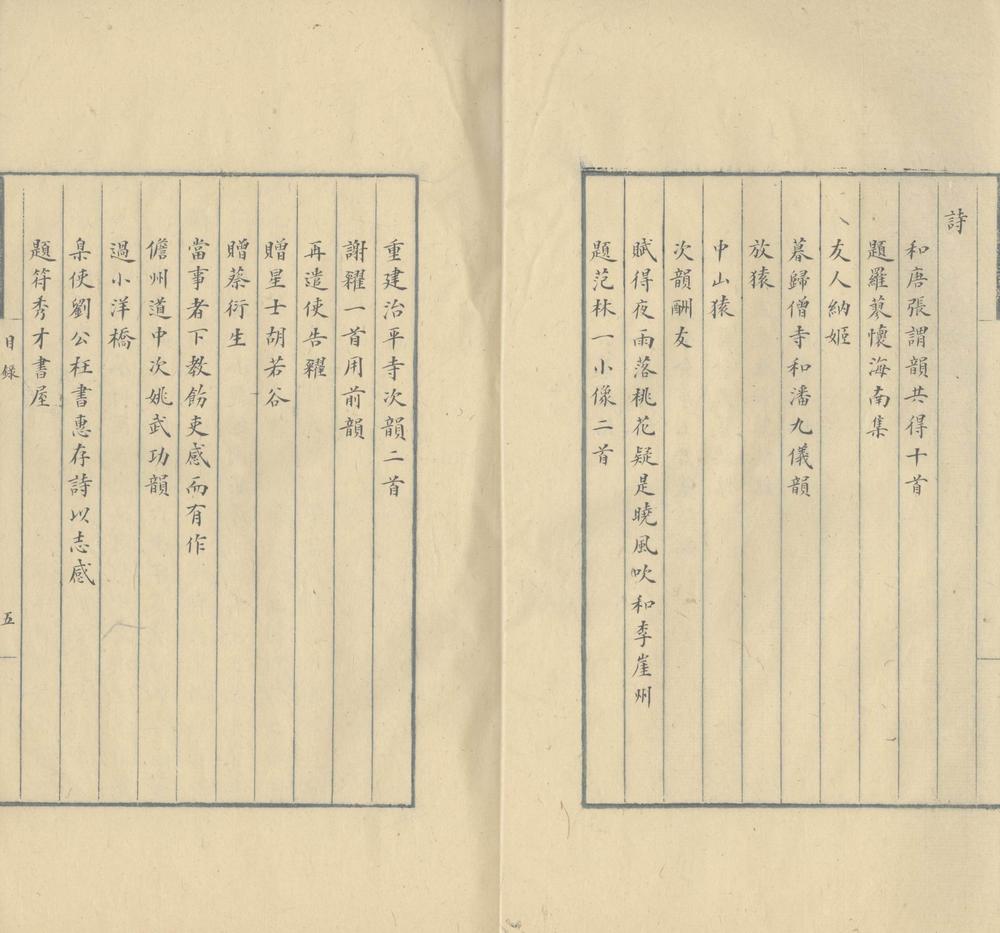 詩
和唐張謂韻共得十首
題羅蔂懷海南集
友人納姬
暮歸僧寺和潘九儀韻
放猿
中山猿
次韻酬友
賦得夜雨落桃花疑是曉風吹和李崖州
題范林一小像二首
重建治平寺次韻二首
謝糴一首用前韻
再遣使告糴
贈星士胡若谷
贈蔡衍生
當事者下教飭吏感而有作
儋州道中次姚武功韻
過小洋橋
臬使劉公枉書惠存詩以志感
題符秀才書屋
目錄
五